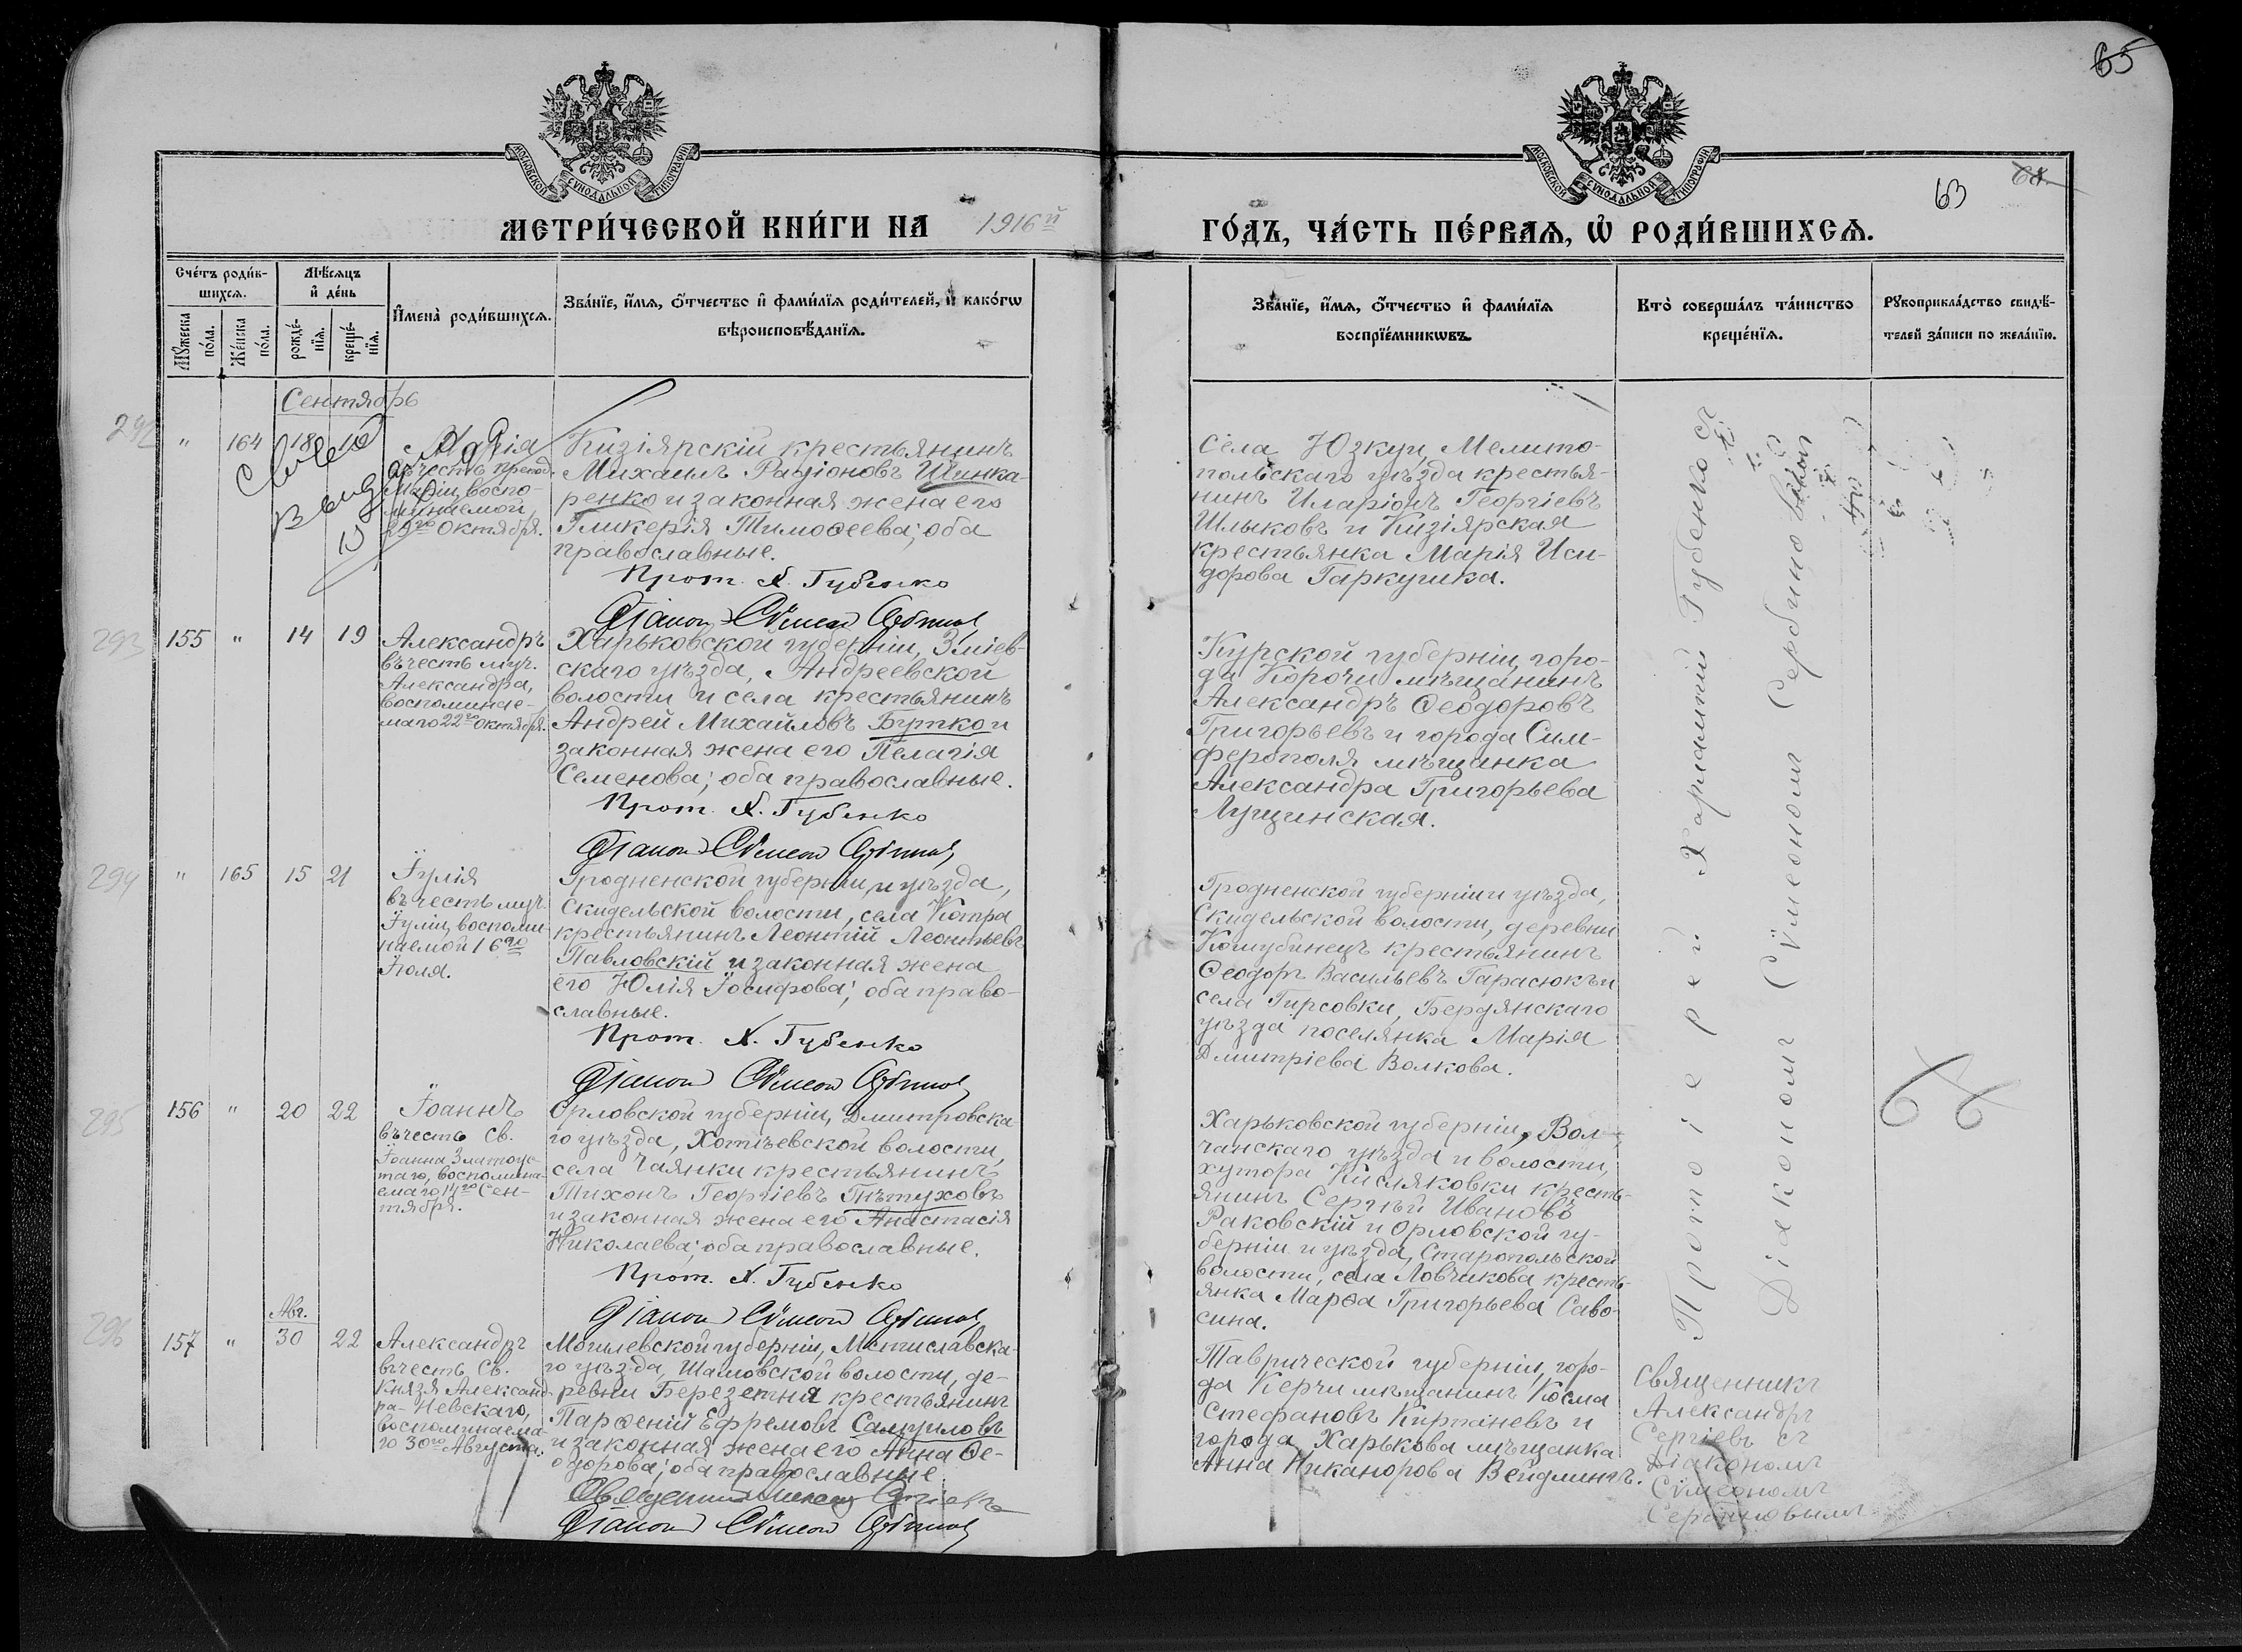 65
МОСКОВСКОЙ СѴНОДАЛЬНОЙ ТИПОГРАФІИ
МОСКОВСКОЙ СѴНОДАЛЬНОЙ ТИПОГРАФІИ
63
МЕТРИ́ЧЕСКОЙ КНИ́ГИ НА 1916й ГО́ДЪ, ЧА́СТЬ ПЕ́РВАѦ, Ѡ҆ РОДИ́ВШИХСѦ.
Сче́тъ роди́в-
шихсѧ.
Мѣ́сѧцъ
и҆ де́нь
Мꙋ́жеска
по́ла.
Же́нска
по́ла.
рожде́-
нїѧ.
креще́-
нїѧ.
И҆мена̀ роди́вшихсѧ.
Зва́нїе, и҆́мѧ, ѻ҆́тчество и҆ фами́лїѧ роди́телей, и҆ како́гѡ
вѣроисповѣ́данїѧ.
Зва́нїе, и҆́мѧ, ѻ҆́тчество и҆ фами́лїѧ
воспрїе́мникѡвъ.
Кто̀ соверша́лъ та́инство
креще́нїѧ.
Рꙋкоприкла́дство свидѣ́-
телей за́писи по жела́нїю.
Сентябрь
292
" 164 18
Марія
въ честь препод.
Маріи, воспо-
минаемой
29го Октября.
Кизіярскій крестьянинъ
Михаилъ Радіоновъ Шинка-
ренко и законная жена его
Гликерія Тимоѳеева; оба
православные.
Прот. Х. Губенко
Діакон Сѵмеон
Села Юзкуи, Мелито-
польскаго уѣзда крестья-
нинъ Иларіонъ Георгіевъ
Шлыковъ и Кизіярская
крестьянка Марія Иси-
дорова Гаркушка.
293
155 " 14 19
Александръ
въ честь муч.
Александра,
воспоминае-
маго 22го Октября.
Харьковской губерніи, Зміев-
скаго уѣзда, Андреевской
волости и села крестьянинъ
Андрей Михайловъ Бутко и
законная жена его Пелагія
Семенова; оба православные.
Прот. Х. Губенко
Діакон Сѵмеон
Курской губерніи, горо-
да Корочи мѣщанинъ
Александръ Ѳеодоровъ
Григорьевъ и города Сим-
ферополя мѣщанка
Александра Григорьева
Лущинская.
294
" 165 15 21
Іулія
въ честь муч.
Іуліи, воспоми-
наемой 16го
Іюля.
Гродненской губерніи, и уѣзда,
Скидельской волости, села Котра
крестьянинъ Леонтій Леонтьевъ
Павловскій и законная жена
его Юлія Іосифова; оба право-
славные.
Прот. Х. Губенко
Діакон Сѵмеон
Гродненской губерніи и уѣзда,
Скидельской волости, деревни
крестьянинъ
Ѳеодоръ Васильевъ Тарасюкъ и
села Гирсовки, Бердянскаго
уѣзда поселянка Марія
Дмитріева Волкова.
295
156 " 20 22
Іоаннъ
въ честь Св.
Іоанна Златоус-
таго, воспомина-
емаго 14го Сен-
тября.
Орловской губерніи, Дмитровска-
го уѣзда, Хотѣевской волости,
села Чаянки крестьянинъ
Тихонъ Георгіевъ Пѣтуховъ
и законная жена его Анастасія
Николаева; оба православные.
Прот. Х. Губенко
Діакон Сѵмеон
Харьковской губерніи, Вол-
чанскаго уѣзда и волости,
хутора Кисляковки кресть-
янинъ Сергѣй Ивановъ
Раковскій и Орловской гу-
берніи и уѣзда, Старопольской
волости, села Ловчикова кресть-
янка Марѳа Григорьева Саво-
сина.
296
Авг.
157 " 30 22
Александръ
въ честь Св.
Князя Александ-
ра-Невскаго,
воспоминаема-
го 30го Августа.
Могилевской губерніи, Мстиславска-
го уѣзда, Шамовской волости, де-
ревни Березетня крестьянинъ
Парѳеній Ефремовъ Самуиловъ
и законная жена его Анна Ѳе-
одорова; оба православные.
Діакон Сѵмеон
Таврической губерніи, горо-
да Керчи мѣщанинъ Косма
Стефановъ и
города Харькова мѣщанка
Анна Никанорова Вейдлингъ.
Протоіерей Харлампій Губенко съ
Діакономъ Сѵмеономъ Сербиновымъ
Священникъ
Александръ
Сергіевъ съ
Діакономъ
Сѵмеономъ
Сербиновымъ